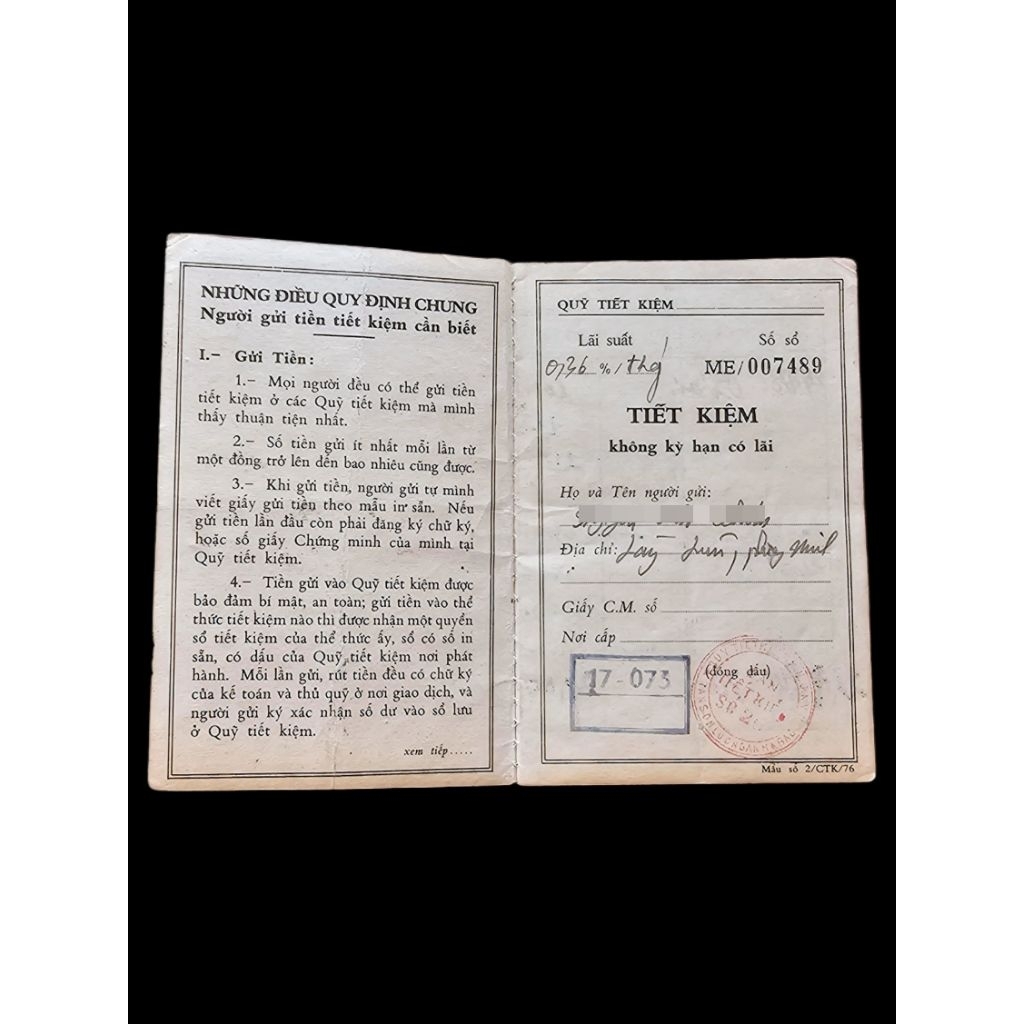 NHỮNG ĐIỀU QUY ĐỊNH CHUNG
Người gửi tiền tiết kiệm cần biết
I.- Gửi Tiền:
1.- Mọi người đều có thể gửi tiền
tiết kiệm ở các Quỹ tiết kiệm mà mình
thấy thuận tiện nhất.
2.- Số tiền gửi ít nhất mỗi lần từ
một đồng trở lên đến bao nhiêu cũng được.
3.- Khi gửi tiền, người gửi tự mình
viết giấy gửi tiền theo mẫu in sẵn. Nếu
gửi tiền lần đầu còn phải đăng ký chữ ký,
hoặc số giấy Chứng minh của mình tại
Quỹ tiết kiệm.
4.- Tiền gửi vào Quỹ tiết kiệm được
bảo đảm bí mật, an toàn; gửi tiền vào thể
thức tiết kiệm nào thì được nhận một quyển
sổ tiết kiệm của thể thức ấy, sổ có số in
sẵn, có dấu của Quỹ tiết kiệm nơi phát
hành. Mỗi lần gửi, rút tiền đều có chữ ký
của kế toán và thủ quỹ ở nơi giao dịch, và
người gửi ký xác nhận số dư vào sổ lưu
ở Quỹ tiết kiệm.
xem tiếp.....
QUỸ TIẾT KIỆM
Lãi suất
Số sổ
0,36 %/thg
ME/007489
TIẾT KIỆM
không kỳ hạn có lãi
Họ và Tên người gửi:
Địa chỉ:
Giấy C.M. số
Nơi cấp
17-073
(đóng dấu)
Mẫu số 2/CTK/76